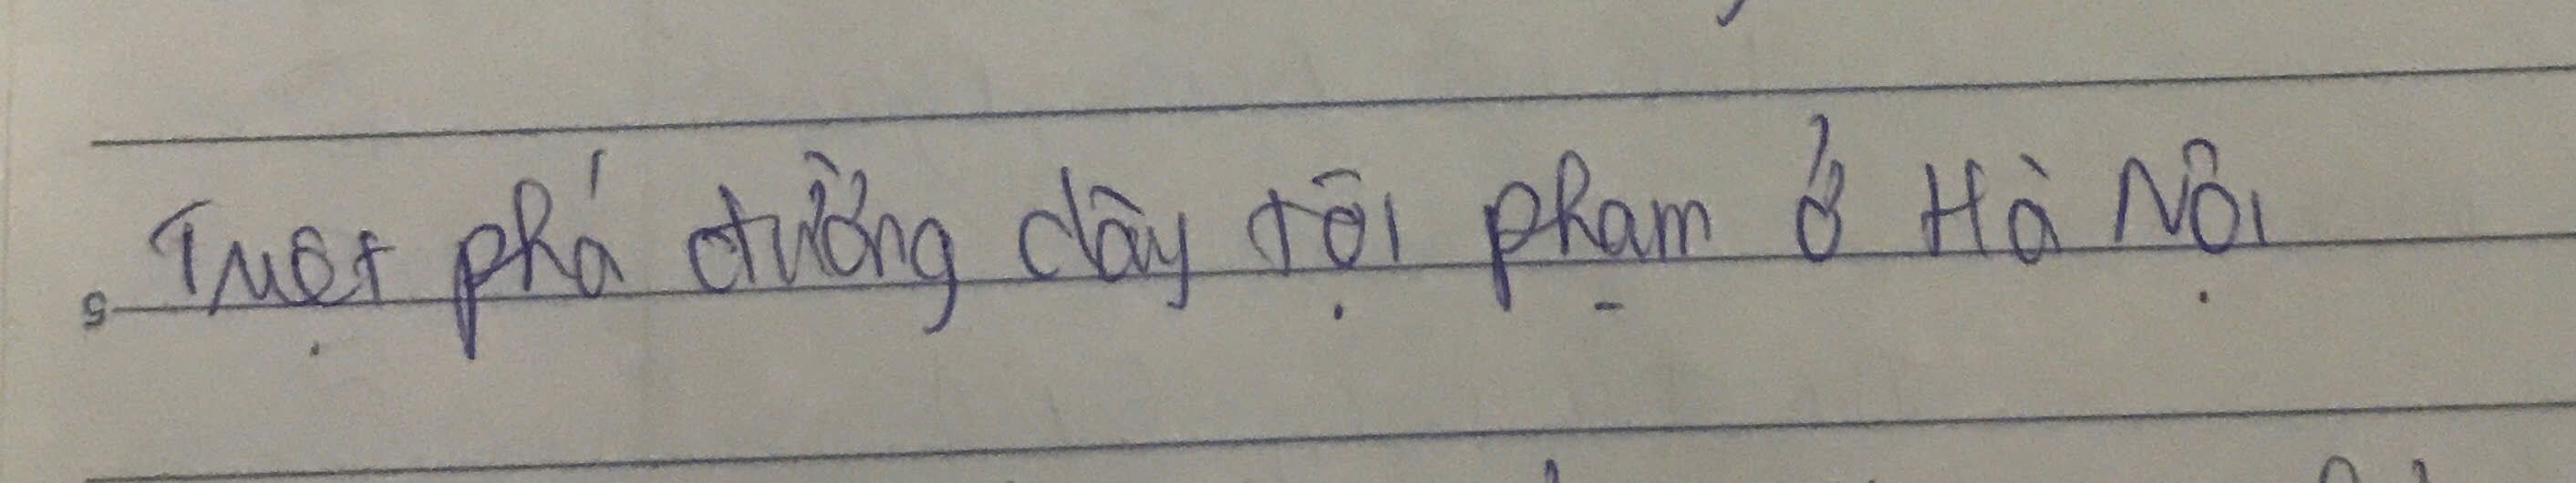 Truột phá đường dây tội phạm ở Hà Nội